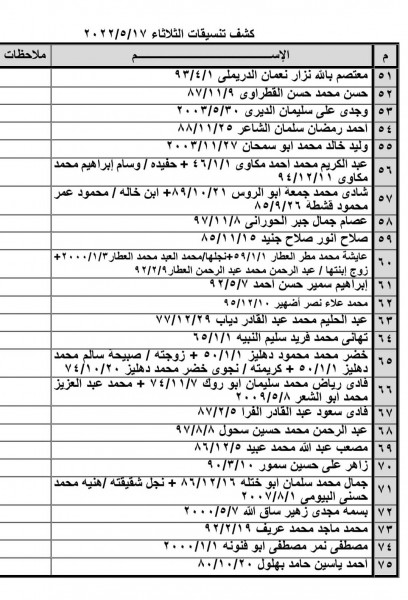 كشف تنسيقات الثلاثاء ٢٠٢٢/٥/١٧
م الإســـــــــم ملاحظات
٥١ معتصم بالله نزار نعمان الدريملى ٩٣/٤/١
٥٢ حسن محمد حسن القطراوى ٨٧/١١/٩
٥٣ وجدى على سليمان الديرى ٢٠٠٣/٥/٣٠
٥٤ احمد رمضان سلمان الشاعر ٨٨/١١/٢٥
٥٥ وليد خالد محمد ابو سمحان ٢٠٠٣/١١/٢٧
٥٦ عبد الكريم محمد احمد مكاوى ٤٦/١/١ + حفيده / وسام إبراهيم محمد
مكاوى ٩٤/١٢/١١
٥٧ شادى محمد جمعة ابو الروس ٨٩/١٠/٢١+ ابن خاله / محمود عمر
محمود قشطة ٨٥/٩/٢٦
٥٨ عصام جمال جبر الحورانى ٩٧/١١/٨
٥٩ صلاح انور صلاح جنيد ٨٥/١١/١٥
٦٠ عايشة محمد مطر العطار ٥٩/١/١+نجلها/محمد العبد محمد العطار٢٠٠٠/١/٣+
زوج إبنتها / عبد الرحمن محمد عبد الرحمن العطار ٩٢/٢/٩
٦١ إبراهيم سمير حسن احمد ٩٢/٥/٧
٦٢ محمد علاء نصر أضهير ٩٥/١٢/١٠
٦٣ عبد الحليم محمد عبد القادر دياب ٧٧/١٢/٢٩
٦٤ تهانى محمد فريد سليم النبيه ٦٥/١/١
٦٥ خضر محمد محمود دهليز ٥٠/١/١ + زوجته / صبيحة سالم محمد
دهليز ٥٠/١/١ + كريمته / نجوى خضر محمد دهليز ٧٤/١٠/٢٠
٦٦ فادى رياض محمد سليمان ابو روك ٧٤/١١/٧ + محمد عبد العزيز
محمد ابو الشعر ٢٠٠٩/٥/٨
٦٧ فادى سعود عبد القادر الفرا ٨٧/٢/٥
٦٨ عبد الرحمن محمد حسين سحول ٩٧/٨/٨
٦٩ مصعب عبد الله محمد عبيد ٨٦/١٢/٥
٧٠ زاهر على حسين سمور ٩٠/٣/١٠
٧١ جمال محمد سلمان ابو ختله ٨٦/١٢/١٦ + نجل شقيقته /هنيه محمد
حسنى البيومى ٢٠٠٧/٨/١
٧٢ بسمه مجدى زهير ساق الله ٢٠٠٠/٥/٧
٧٣ محمد ماجد محمد عريف ٩٢/٢/١٩
٧٤ مصطفى نمر مصطفى ابو فنونه ٢٠٠٠/١/١
٧٥ احمد ياسين حامد بهلول ٨٠/١٠/٢٠